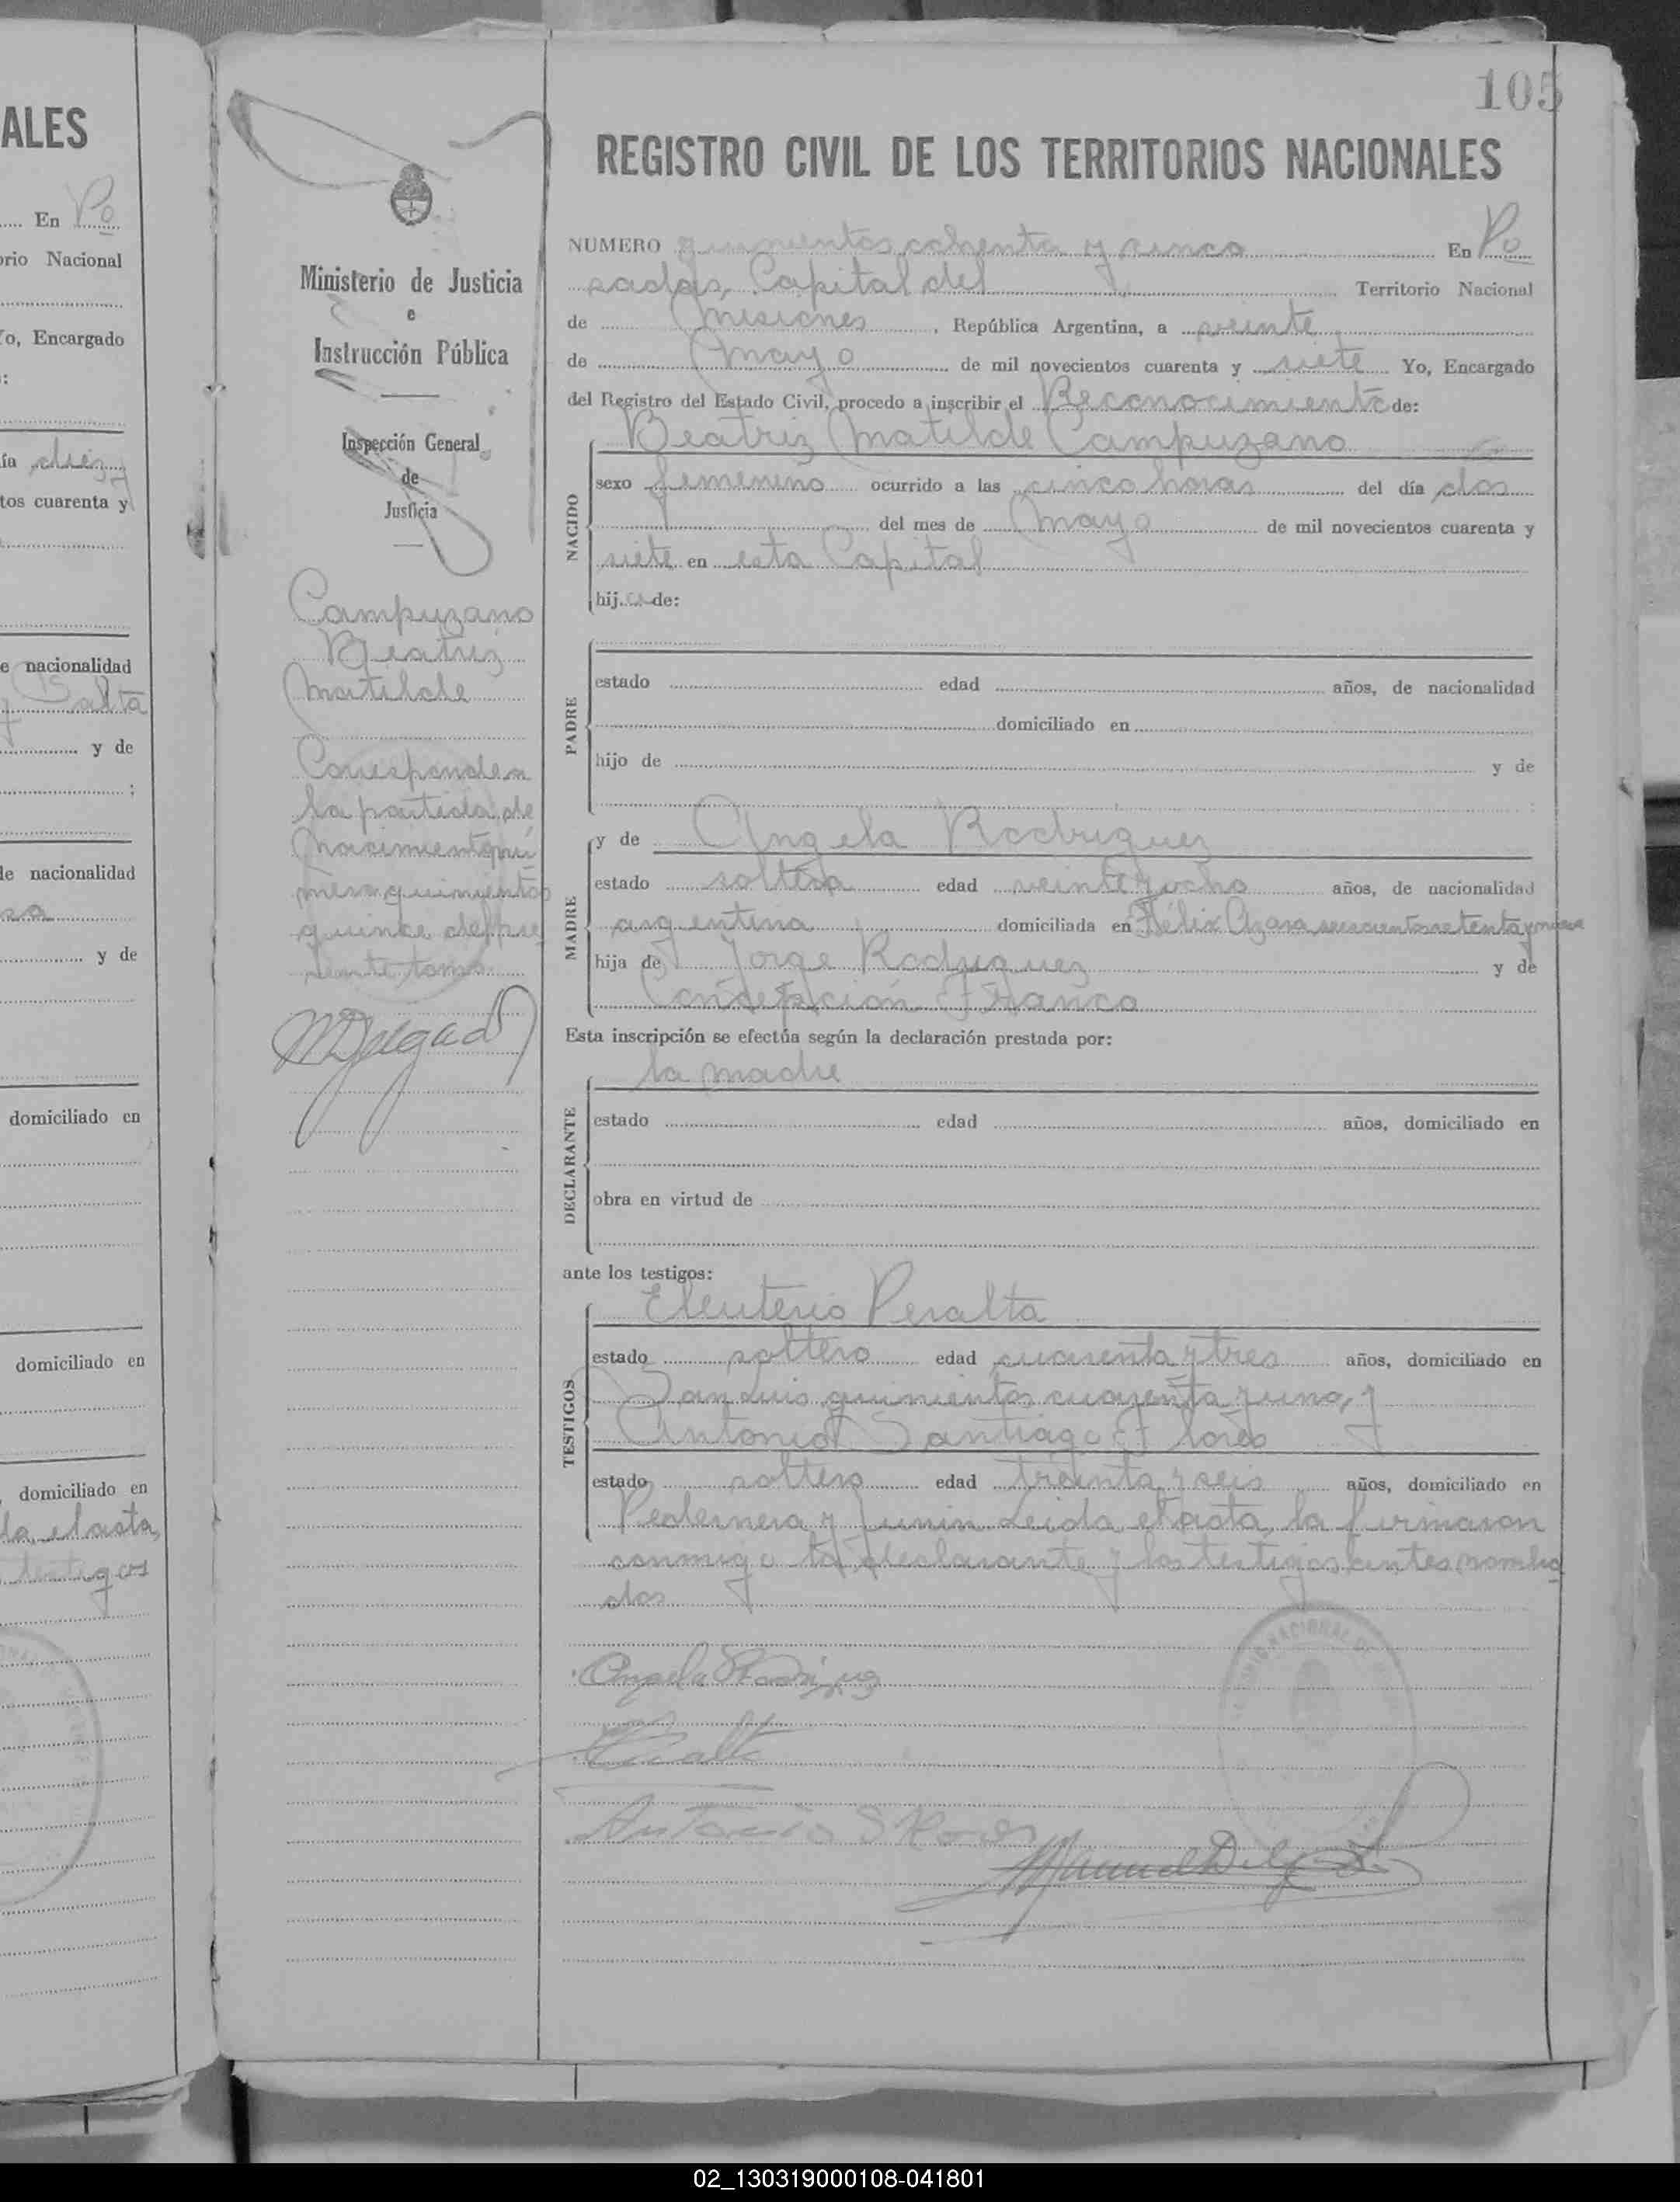 ALES
En Po
rio Nacional
Yo, Encargado
:
ía diez
tos cuarenta y
e nacionalidad
y Salta
y de
;
de nacionalidad
y de
domiciliado en
domiciliado en
domiciliado en
da el acta,
testigos
105
Ministerio de Justicia
e
Instrucción Pública
Inspección General
de
Justicia
Campuzano
Beatriz
Matilde
Corresponde a
la partida de
Nacimiento nú
mero quinientos
quince del pre
sente tomo.
MDelgado
REGISTRO CIVIL DE LOS TERRITORIOS NACIONALES
NUMERO quinientos ochenta y cinco En Po
sadas, Capital del Territorio Nacional
de Misiones, República Argentina, a veinte
de Mayo de mil novecientos cuarenta y siete Yo, Encargado
del Registro del Estado Civil, procedo a inscribir el Reconocimiento de:
NACIDO
Beatriz Matilde Campuzano
sexo femenino ocurrido a las cinco horas del día dos
del mes de Mayo de mil novecientos cuarenta y
siete en esta Capital
hija de:
PADRE
estado edad años, de nacionalidad
domiciliado en
hijo de y de
MADRE
y de Angela Rodriguez
estado soltera edad veinte y ocho años, de nacionalidad
argentina domiciliada en Félix Azara setenta y nueve
hija de Jorge Rodriguez y de
Franco
Esta inscripción se efectúa según la declaración prestada por:
la madre
DECLARANTE
estado edad años, domiciliado en
obra en virtud de
ante los testigos:
TESTIGOS
Eleuterio Peralta
estado soltero edad cuarenta y tres años, domiciliado en
San Luis quinientos cuarenta y uno, y
Antonio Santiago Flores
estado soltero edad treinta y seis años, domiciliado en
Pedernera y Junin Leida el acta, la firmaron
conmigo la declarante y los testigos antes nombra
dos
Angela Rodriguez
Peralta
Antonio S Flores
Manuel Delgado
02_130319000108-041801